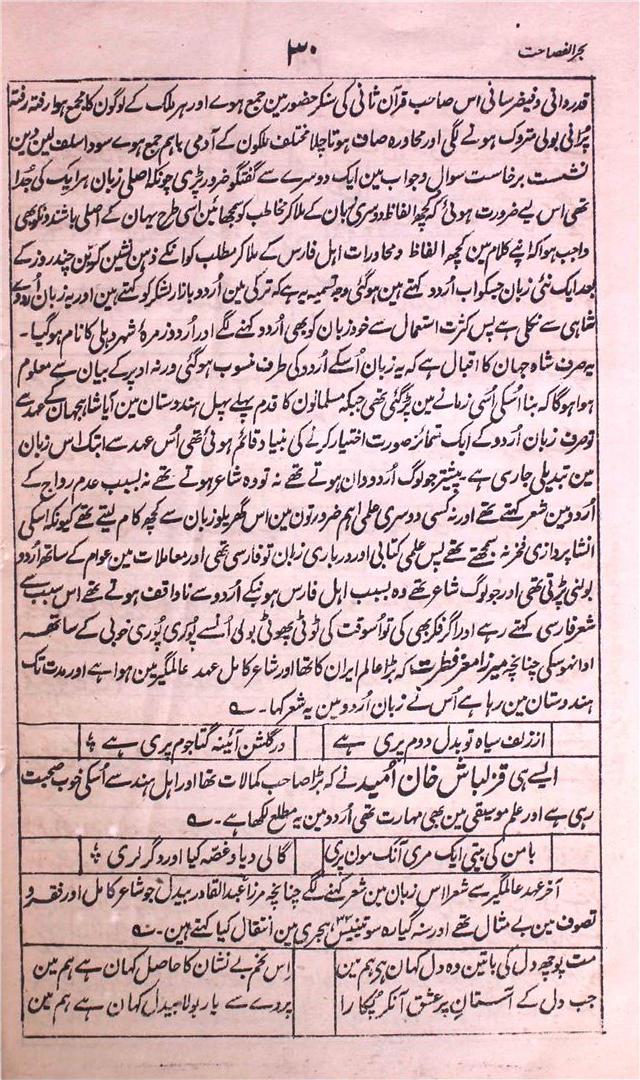 بحر الفصاحت
۳۰
قدردانی و فیض رسانی اس صاحب قرآن ثانی کی سنکر حضور مین جمع ہوے اور ہر ملک کے لوگون کا مجمع ہوا رفتہ رفتہ
پرانی بولی متروک ہونے لگی اور محاورہ صاف ہوتا چلا مختلف ملکون کے آدمی باہم جمع ہوے سودا سلف لین دین
نشست برخاست سوال و جواب مین ایک دوسرے سے گفتگو ضرور پڑی چونکہ اصلی زبان ہر ایک کی جدا
تھی اس لیے ضرورت ہوئی کہ کچھ الفاظ دوسری زبان کے ملا کر مخاطب کو سمجھائین اسی طرح یہان کے اصلی باشندونکو بھی
واجب ہوا کہ اپنے کلام مین کچھ الفاظ و محاورات اہل فارس کے ملا کر مطلب کو انکے ذہن نشین کرین چند روز کے
بعد ایک نئی زبان جسکو اب اُردو کہتے ہین ہوگئی وجہ تسمیہ یہ ہے کہ ترکی مین اُردو بازار لشکر کو کہتے ہین اور یہ زبان اُردوے
شاہی سے نکلی ہے پس کثرت استعمال سے خود زبان کو بھی اُردو کہنے لگے اور اُردو زمرۂ شہر دہلی کا نام ہوگیا۔
یہ صرف شاہ جہان کا اقبال ہے کہ یہ زبان اُسکے اُردو کی طرف منسوب ہوگئی ورنہ اوپر کے بیان سے معلوم
ہوا ہوگا کہ بنا اُسکی اُسی زمانے مین پڑگئی تھی جبکہ مسلمانون کا قدم پہلے پہل ہندوستان مین آیا شاہجہان کے عہد سے
تو صرف زبان اُردو کے ایک متمائز صورت اختیار کرنے کی بنیاد قائم ہوئی تھی اُس عہد سے ابتک اس زبان
مین تبدیلی جاری ہے پیشتر جو لوگ اُردو دان ہوتے تھے نہ تو وہ شاعر ہوتے تھے نہ بسبب عدم رواج کے
اُردو مین شعر کہتے تھے اور نہ کسی دوسری علمی اہم ضرورتون مین اس گھریلو زبان سے کچھ کام لیتے تھے کیونکہ اسکی
انشا پردازی فخر نہ سمجھتے تھے پس علمی کتابی اور درباری زبان تو فارسی تھی اور معاملات مین عوام کے ساتھ اُردو
بولنی پڑتی تھی اور جو لوگ شاعر تھے وہ بسبب اہل فارس ہونیکے اُردو سے ناواقف ہوتے تھے اس سبب سے
شعر فارسی کہتے رہے اور اگر فکر بھی کی تو اُسوقت کی ٹوٹی پھوٹی بولی اُنسے پوری پوری خوبی کے ساتھہ
ادا نہوسکی چنانچہ میرزا معز فطرت کہ بڑا عالم ایران کا تھا اور شاعر کامل عہد عالمگیر مین ہوا ہے اور مدت تک
ہندوستان مین رہا ہے اُس نے زبان اُردو مین یہ شعر کہا۔
از زلف سیاہ تو بدل دوم پری ہے درگلشن آئینہ گتا جوم پری ہے
ایسے ہی قزلباش خان اُمید نے کہ بڑا صاحب کمالات تھا اور اہل ہند سے اُسکی خوب صحبت
رہی ہے اور علم موسیقی مین بھی مہارت تھی اُردو مین یہ مطلع لکھا ہے۔
بامن کی بیٹی ایک مری آنک مون پری گالی دیا و غصہ کیا اور دگر لری
آخر عہد عالمگیر سے شعرا اس زبان مین شعر کہنے لگے چنانچہ مرزا عبدالقادر بیدل جو شاعر کامل اور فقر و
تصوف مین بے مثال تھے اور سنہ گیارہ سو تینتیس ہجری مین انتقال کیا کہتے ہین۔
مت پوچھ دل کی باتین وہ دل کہان ہے ہم مین اِس تخم بے نشان کا حاصل کہان ہے ہم مین
جب دل کے آستان پر عشق آنکر پکارا پردے سے یار بولا بیدل کہان ہے ہم مین